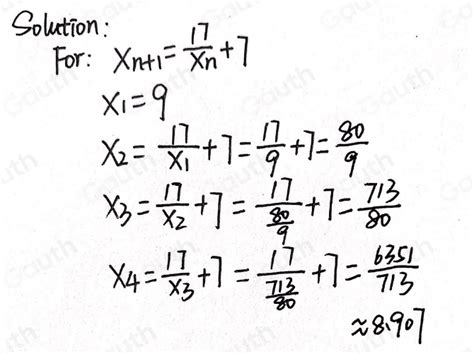 Solution:
For: Xn+1 = 17/Xn + 7
X1 = 9
X2 = 17/X1 + 7 = 17/9 + 7 = 80/9
X3 = 17/X2 + 7 = 17/(80/9) + 7 = 713/80
X4 = 17/X3 + 7 = 17/(713/80) + 7 = 6351/713
≈ 8.907